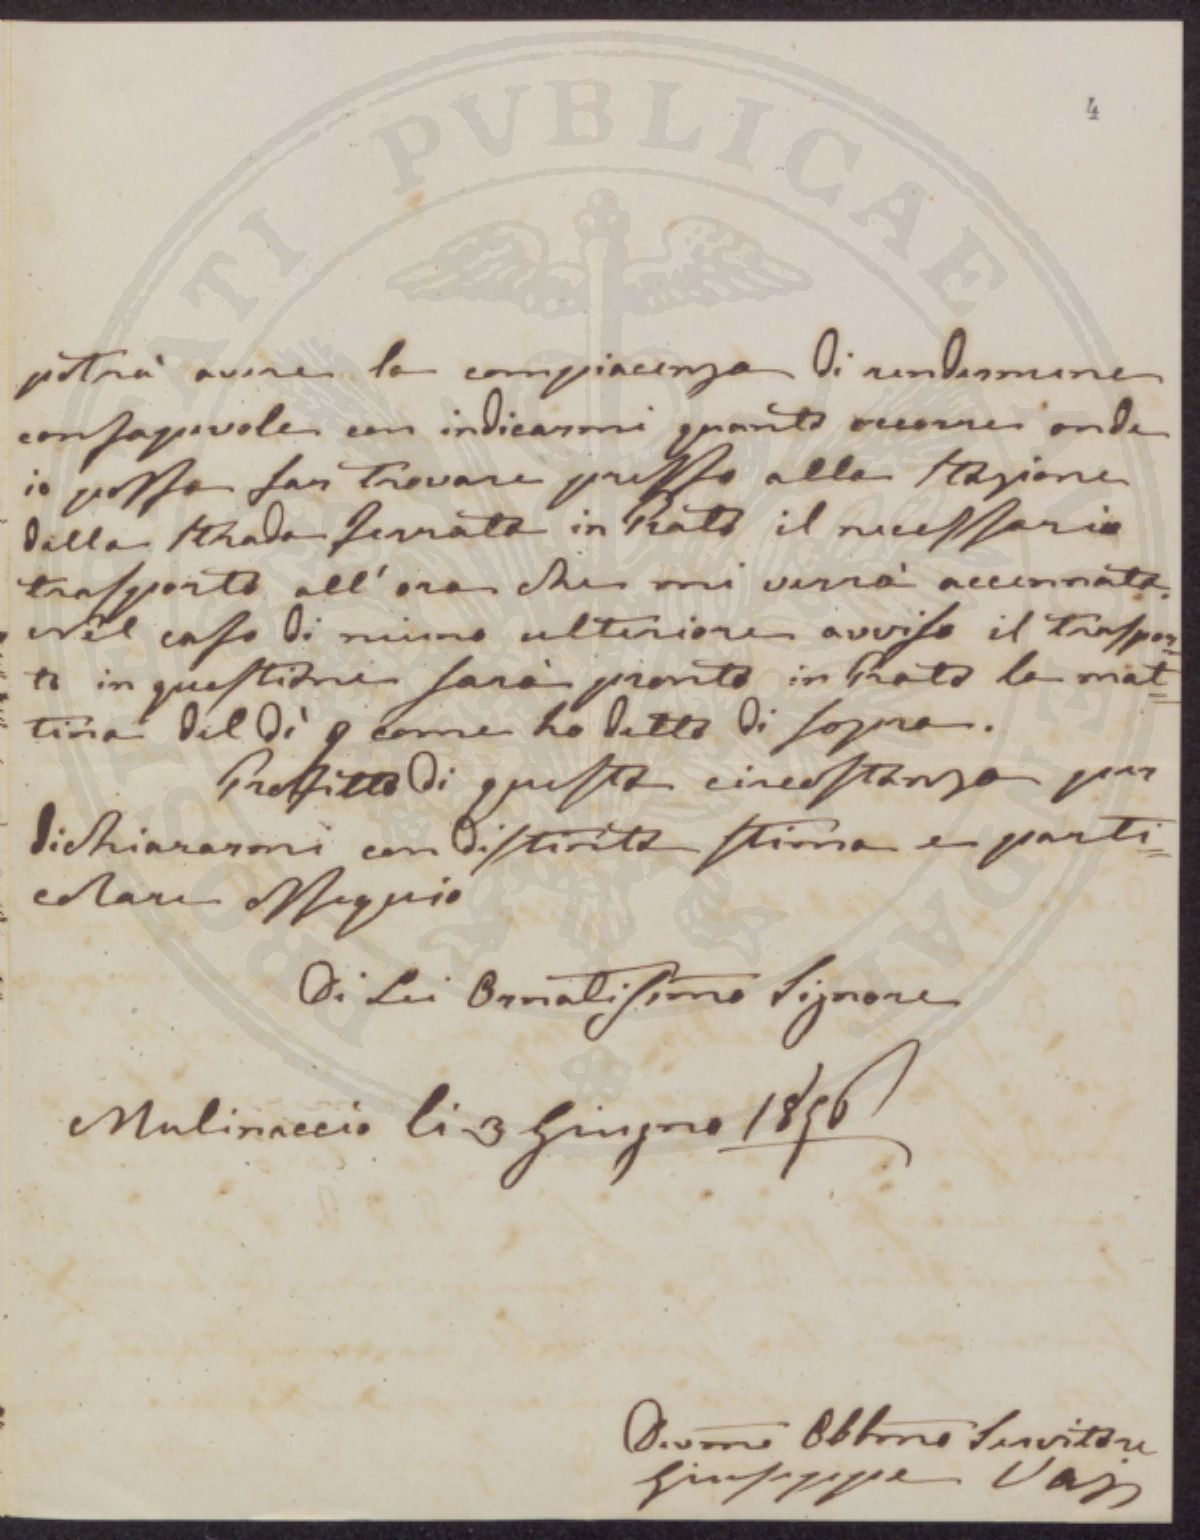 4
potrà avere la compiacenza di rendermene
consapevole con indicarmi quanto occorre onde
io possa far trovare presso alla Stazione
della Strada ferrata in Prato il necessario
trasporto all'ora che mi verrà accennata.
Nel caso di niuno ulteriore avviso il traspor=
to in questione sarà pronto in Prato la mat=
tina del dì 9 come ho detto di sopra.
Profitto di questa circostanza per
dichiararmi con distinta stima e parti=
colare ossequio
Di Lei Ornatissimo Signore
Mulinaccio li 3 Giugno 1856
Devmo Obbmo Servitore
Giuseppe Vaj
PVBLICAE